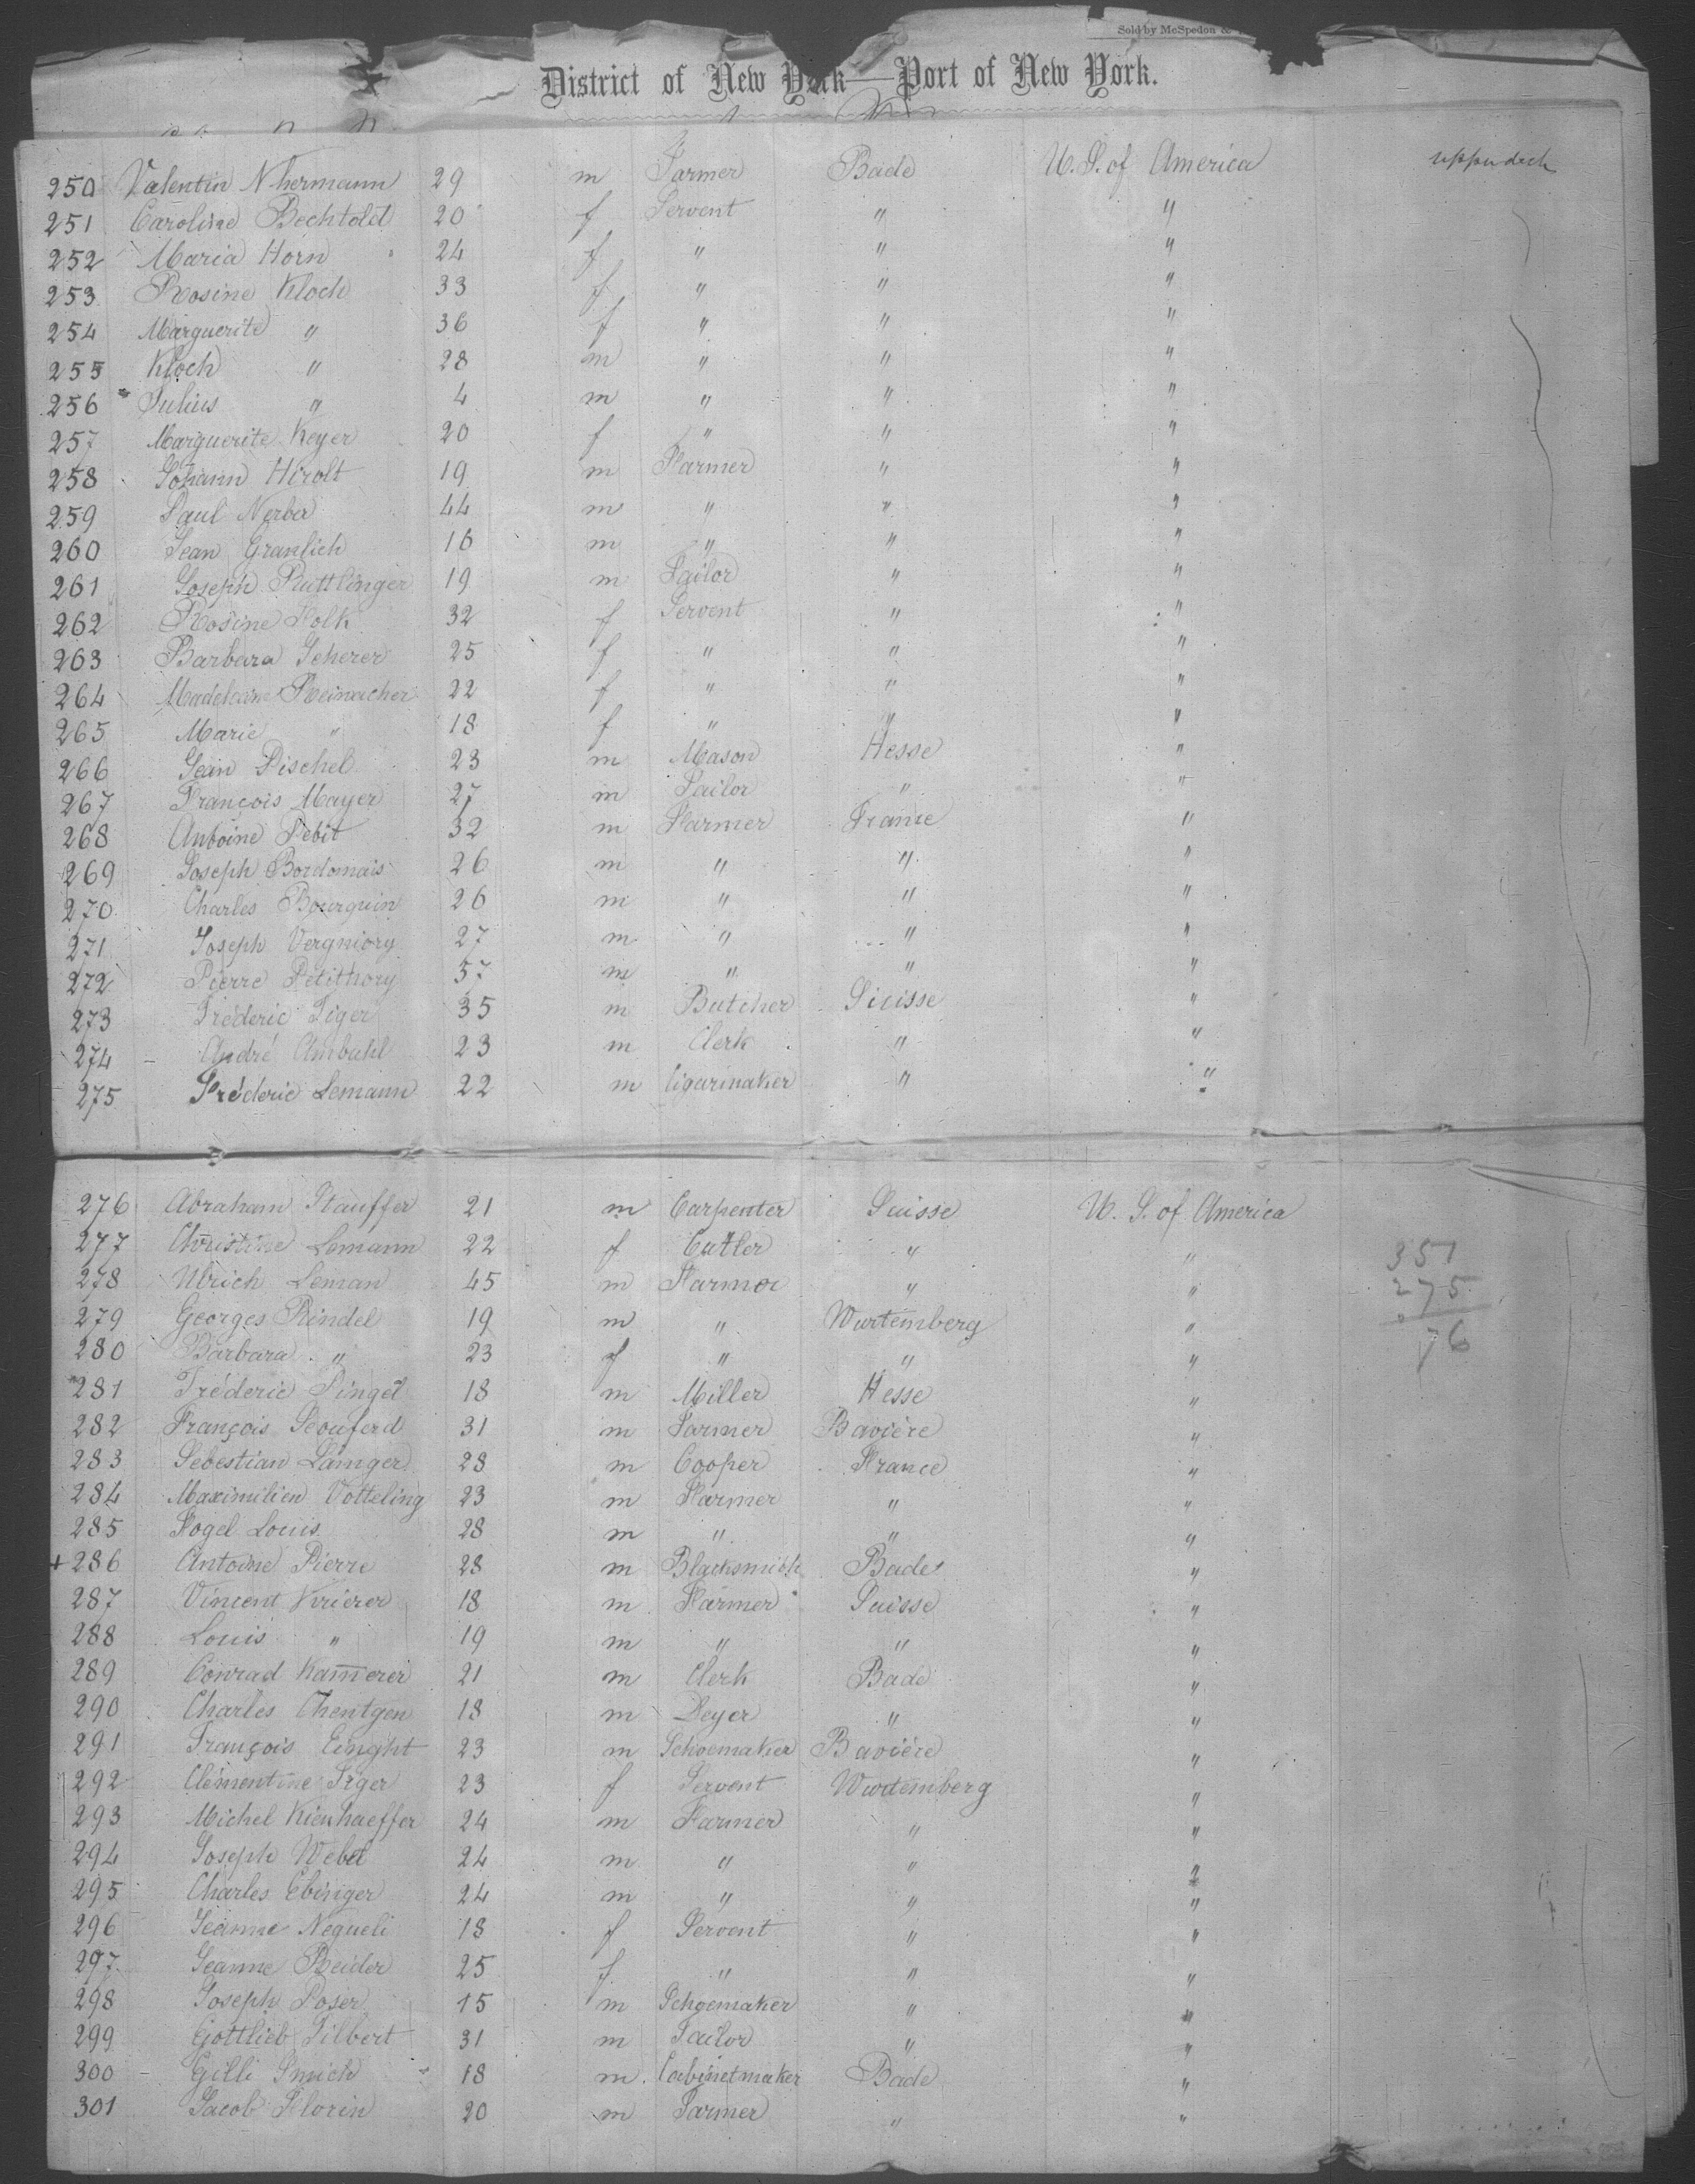 Sold by McSpedon &
District of New York—Port of New York.
250 Valentin N hermann 29 m Farmer Bade U. S. of America upper deck
251 Caroline Bechtold 20 f Servent " "
252 Maria Horn 24 f " " "
253 Rosine Kloch 33 f " " "
254 Marguerite " 36 f " " "
255 Kloch " 28 m " " "
256 Julius " 4 m " " "
257 Marguerite Keyer 20 f " " "
258 Johann Hirolt 19 m Farmer " "
259 Paul Nerber 44 m " " "
260 Jean 16 m " " "
261 Joseph Ruttlinger 19 m Tailor " "
262 Rosine Folk 32 f Servent " "
263 Barbara Scherer 25 f " " "
264 Reinacher 22 f " " "
265 Marie " 18 f " " "
266 Jean Pischel 23 m Mason Hesse "
267 François Mayer 27 m Tailor " "
268 Antoine Petit 32 m Farmer France "
269 Joseph Bordomais 26 m " " "
270 Charles Bourquin 26 m " " "
271 Joseph Vergniory 27 m " " "
272 Pierre Petithory 57 m " " "
273 Fréderic Tiger 35 m Butcher Suisse "
274 – André Ambuhl 23 m Clerk " "
275 Fréderic Lemann 22 m Cigarmaker " "
276 Abraham Stauffer 21 m Carpenter Suisse U. S. of America
277 Christine Lemann 22 f Cutler " "
278 Ulrich Leman 45 m Farmer " "
279 Georges Rindel 19 m " Wurtemberg "
280 Barbara " 23 f " " "
281 Fréderic Singel 18 m Miller Hesse "
282 François Seouferd 31 m Farmer Bavière "
283 Sebestian Lainger 28 m Cooper France "
284 Maximilien Votteling 23 m Farmer " "
285 Fogel Louis 28 m " " "
+ 286 Antoine Pierre 28 m Blacksmith Bade "
287 Vincent Krierer 18 m Farmer Suisse "
288 Louis " 19 m " " "
289 Conrad Kam̅erer 21 m Clerk Bade "
290 Charles Chentgen 18 m Deyer " "
291 François Einght 23 m Schoemaker Bavière "
292 Clémentine Irger 23 f Servent Wurtemberg "
293 Michel Kienhaeffer 24 m Farmer " "
294 Joseph Webel 24 m " " "
295 Charles Ebinger 24 m " " "
296 Jeanne Negueli 18 f Servent " "
297 Jeanne Reider 25 f " " "
298 Joseph Poser 15 m Schoemaker " "
299 Gottlieb Filbert 31 m Tailor " "
300 – Gilli Smich 18 m Cabinetmaker Bade "
301 Jacob Florin 20 m Farmer " "
351
275
76